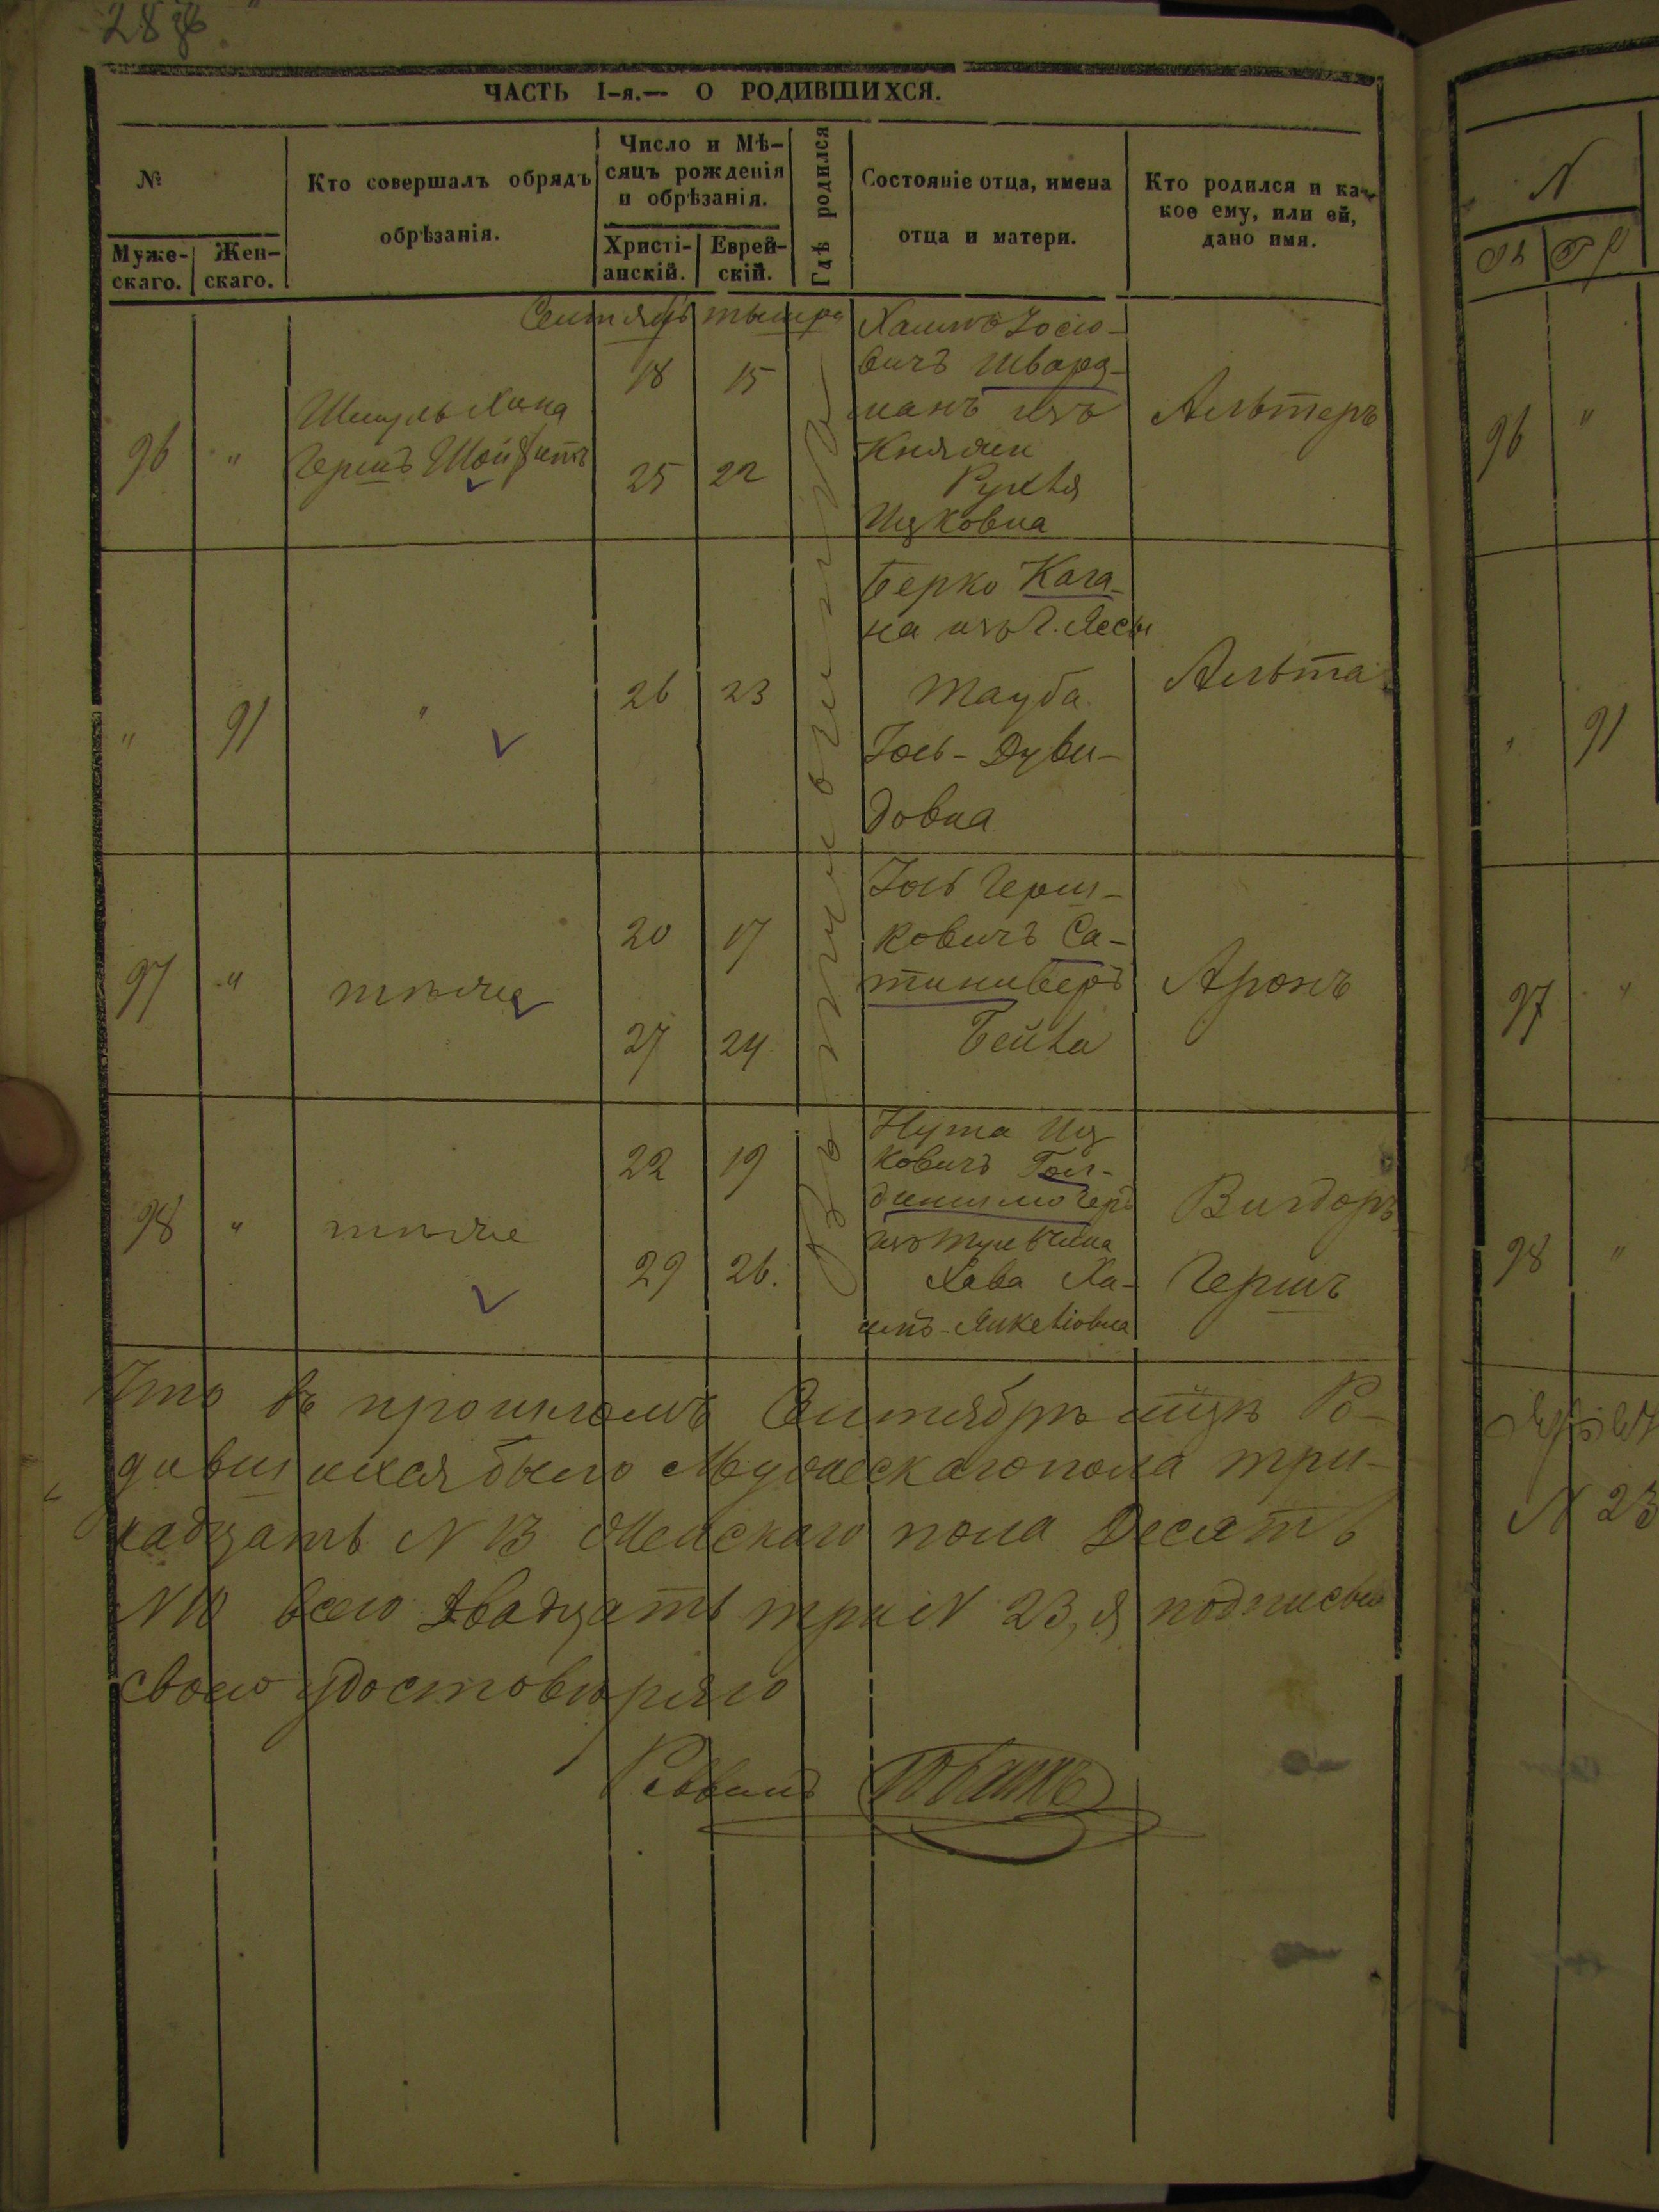 ЧАСТЬ I-я.— О РОДИВШИХСЯ.
№
Муже-
скаго.
Жен-
скаго.
Кто совершалъ обрядъ
обрѣзанія.
Число и Мѣ-
сяцъ рожденія
и обрѣзанія.
Христі-
анскій.
Еврей-
скій.
Гдѣ родился
Состояніе отца, имена
отца и матери.
Кто родился и ка-
кое ему, или ей,
дано имя.
96 "
Герша
18 15
25 22
Хаимъ Іосіо-
вичъ Шварц-
манъ изъ
Рухля
Ицковна
Альтеръ
" 91
"
26 23
Берко Кага-
на изъ г. Яссы
Тауба
Іось-Дуви-
довна
Альта
97 "
тотже
20 17
27 24
Іось Герш-
ковичъ Са-
тиниверъ
Бейла
Аронъ
98 "
тотже
22 19
29 26.
Нута Иц
ковичъ Гол-
изъ Тульчина
Хава Ха-
имъ-Янкеліовна
Вигдоръ
Гершъ
Что въ прошломъ Сентябрѣ мцѣ Ро-
дившихся было Мужескаго пола три-
надцать N 13 Женскаго пола Десять
N 10 всего двадцать три N 23, я подписью
своею удостовѣряю
Раввинъ
N
96 "
" 91
97 "
98 "
N 23